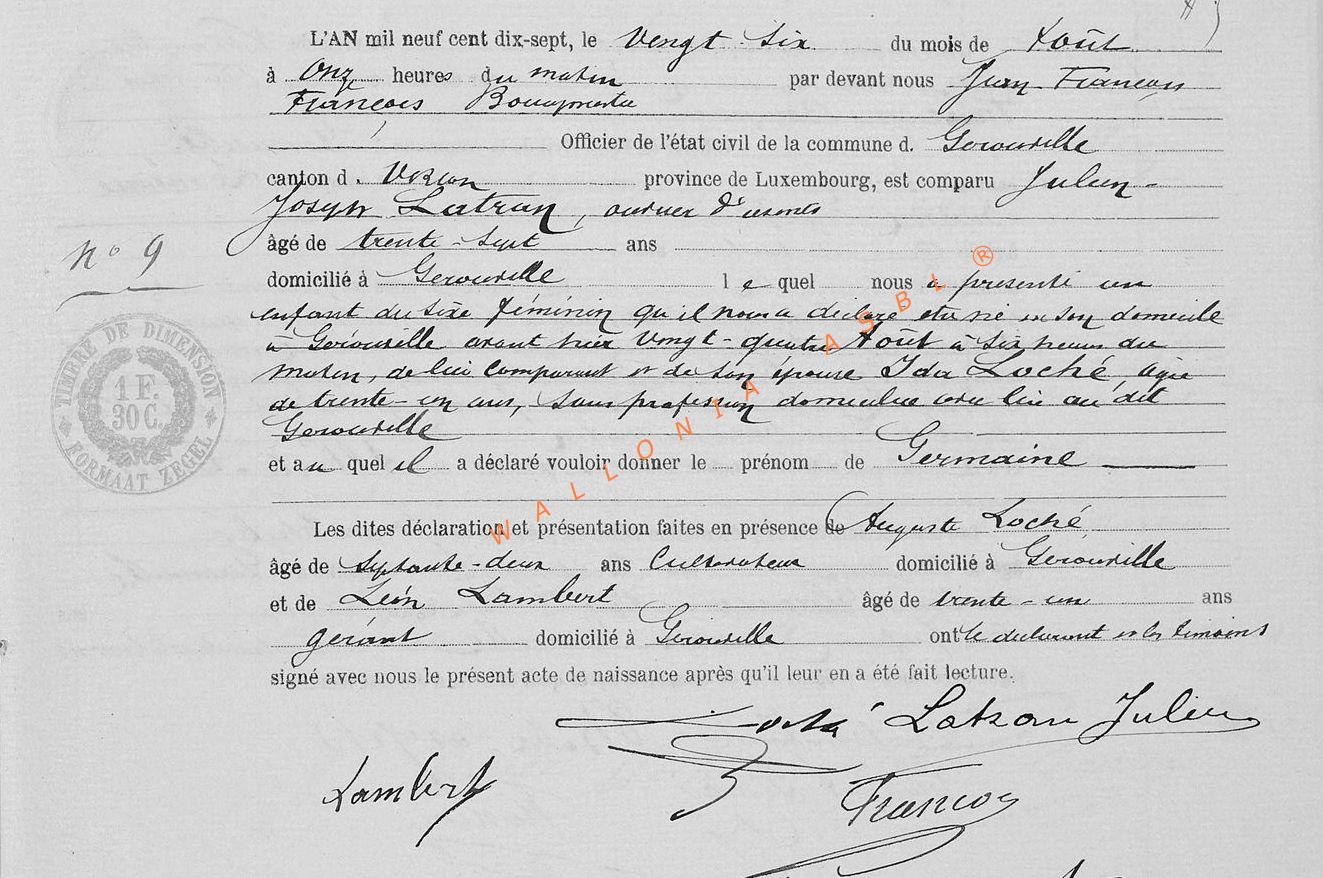 L'AN mil neuf cent dix-sept, le Vengt Six du mois de Août
à Onze heures du matin par devant nous Jean Francois
Francois Bourgmestre
Officier de l'état civil de la commune d. Gerouville
canton d. Virton province de Luxembourg, est comparu Julien-
Joseph Latran, ouvrier d'usines
nº 9
âgé de trente-sept ans
domicilié à Gerouville le quel nous a présenté un
enfant du sexe féminin qu'il nous a déclaré être né en son domicile
à Gérouville avant hier vingt-quatre Août à six heures du
matin, de lui comparant et de son épouse Ida Loché âgée
de trente-un ans, sans profession domiciliée au dit
Gerouville
et au quel il a déclaré vouloir donner le prénom de Germaine
Les dites déclaration et présentation faites en présence de Auguste Loché
âgé de septante-deux ans Cultivateur domicilié à Gerouville
et de Léon Lambert âgé de trente-un ans
gérant domicilié à Gerouville ont le déclarant et les témoins
signé avec nous le présent acte de naissance après qu'il leur en a été fait lecture.
Loché Latran Julien
Lambert Francois
TIMBRE DE DIMENSION
1 F.
30 C.
FORMAAT ZEGEL
WALLONIA ASBL ®